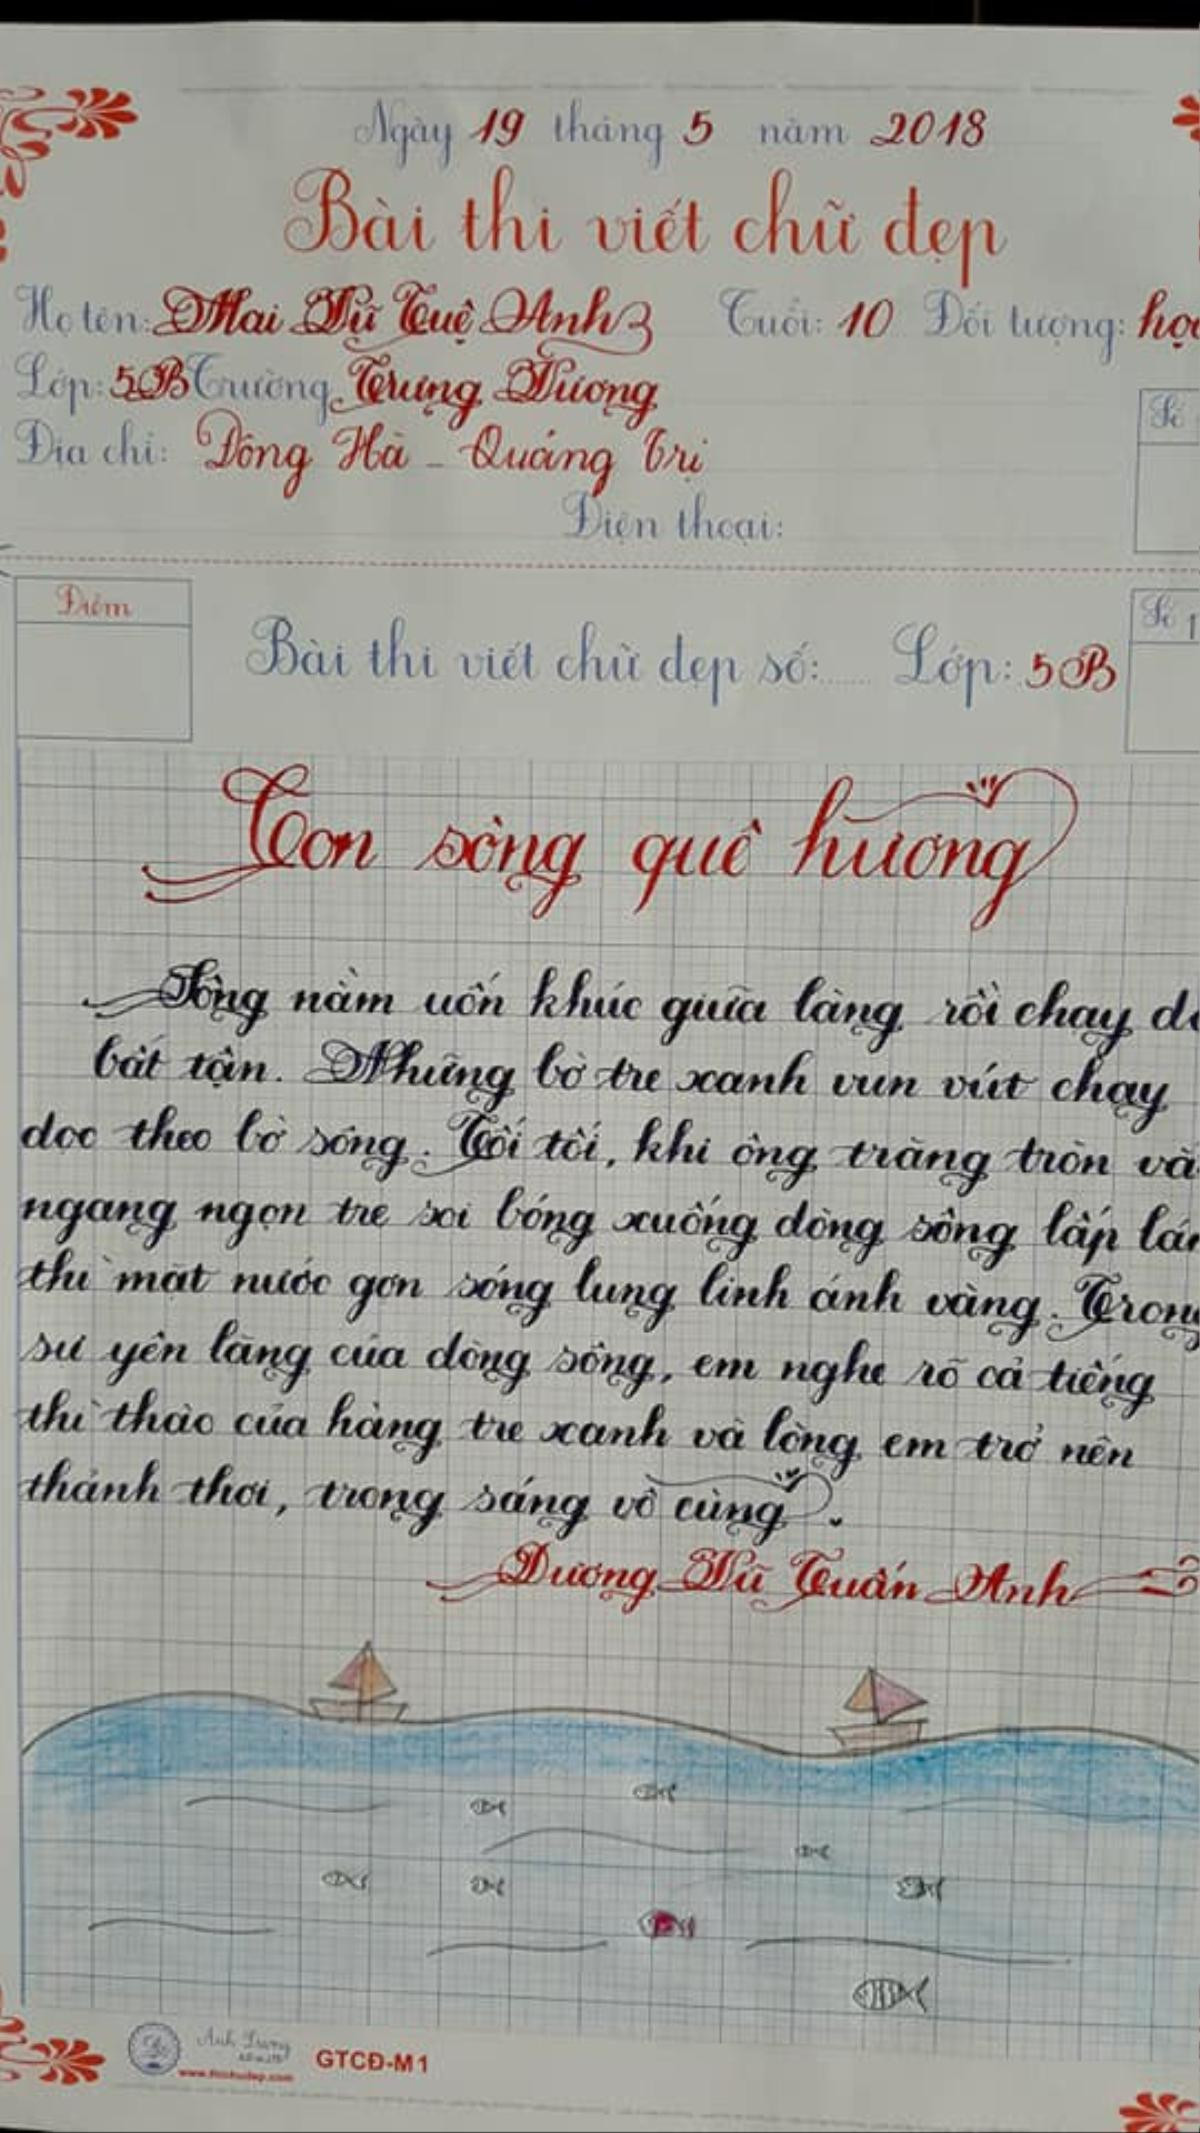 Ngày 19 tháng 5 năm 2018
Bài thi viết chữ đẹp
Họ tên: Mai Vũ Tuệ Anh Tuổi: 10 Đối tượng: học
Lớp: 5B Trường Trưng Vương
Địa chỉ: Đông Hà - Quảng Trị
Điện thoại:
Điểm
Bài thi viết chữ đẹp số:...... Lớp: 5B
Con sông quê hương
Sông nằm uốn khúc giữa làng rồi chạy d
bất tận. Những bờ tre xanh vun vút chạy
dọc theo bờ sông. Tối tối, khi ông trăng tròn và
ngang ngọn tre soi bóng xuống dòng sông lấp lán
thì mặt nước gợn sóng lung linh ánh vàng. Trong
sự yên lặng của dòng sông, em nghe rõ cả tiếng
thì thào của hàng tre xanh và lòng em trở nên
thảnh thơi, trong sáng vô cùng.
Dương Vũ Tuấn Anh
GTCĐ-M1